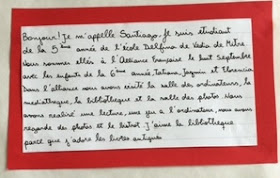 Bonjour! Je m'appelle Santiago. Je suis étudiant
de la 5ème année de l'école Delfina de Vedia de Mitre.
Nous sommes allés à l'Alliance française le huit Septembre
avec les enfants de la 6ème année, Tatiana, Joaquin et Florencia
Dans l'alliance nous avons visité la salle des ordinateurs, la
mediathèque, la bibliothèque et la salle des photos. Nous
avons réalisé une lecture, une jeu a l'ordinateur, nous avons
regardé des photos et le bistrot. J'aime la bibliothèque
parce que j'adore les livres antiques.